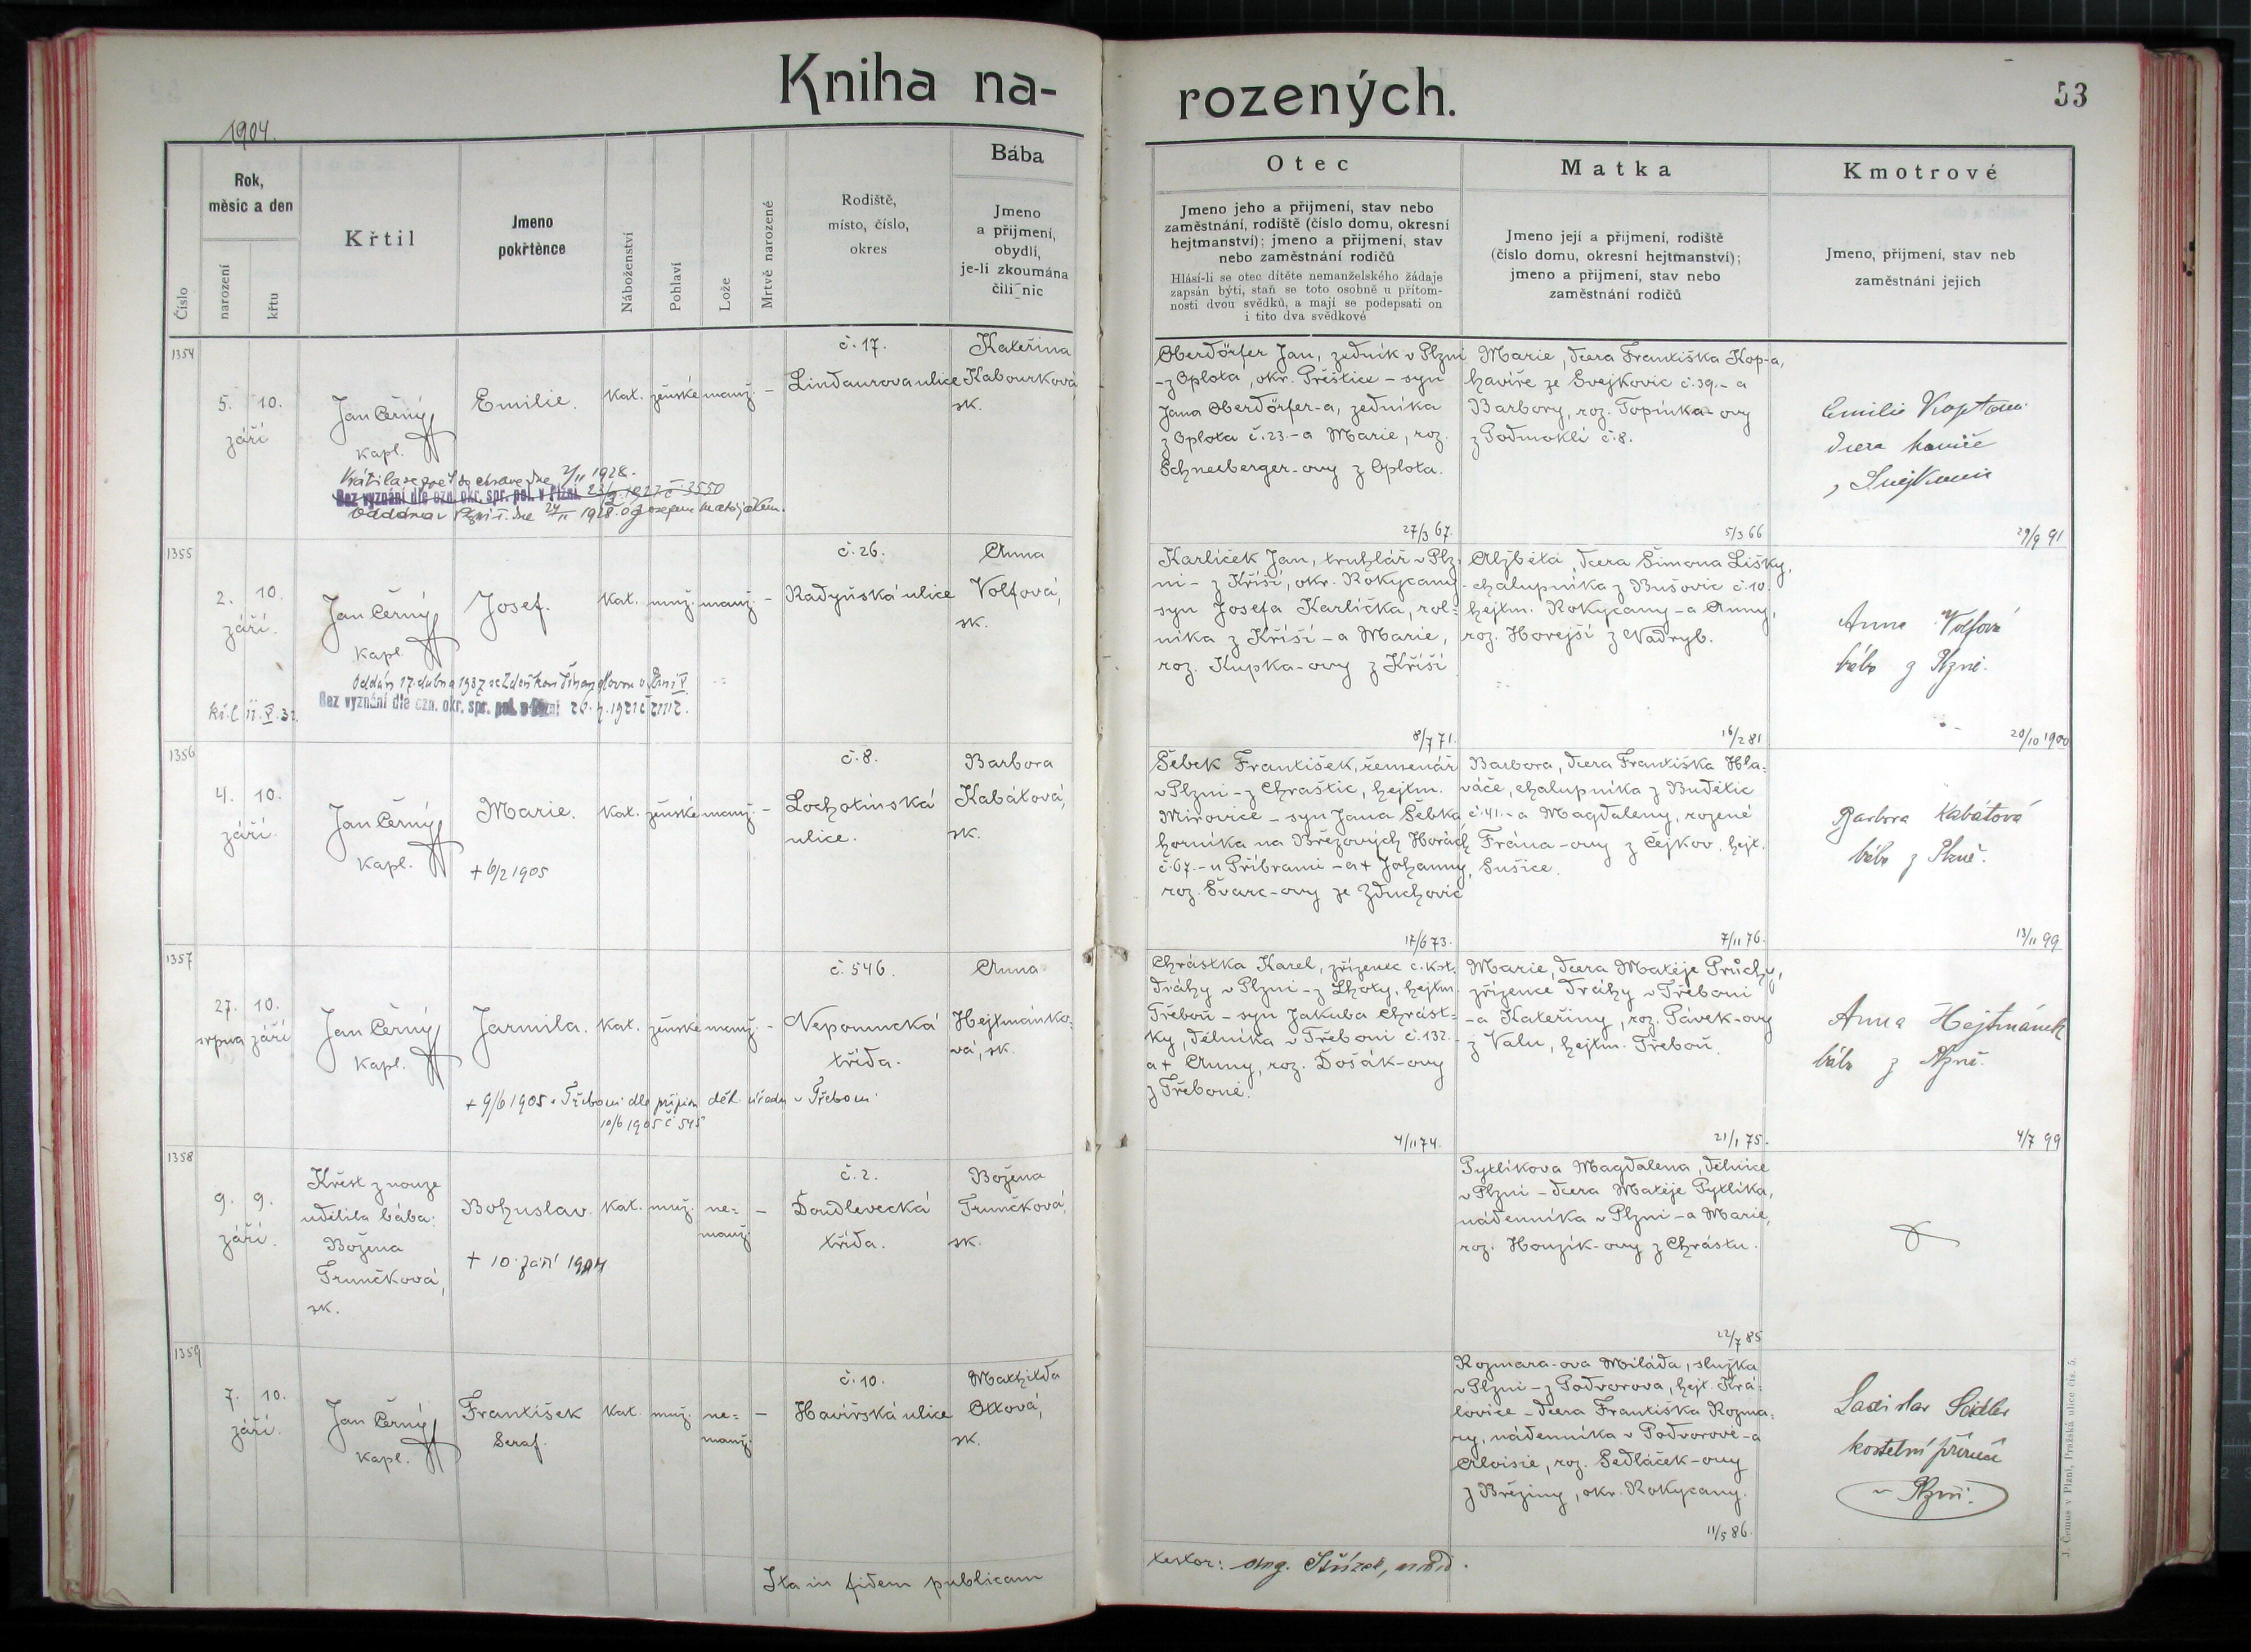 Kniha na-
rozených.
53
1904.
Číslo
Rok,
měsíc a den
narození
křtu
Křtil
Jmeno
pokřtěnce
Náboženství
Pohlaví
Lože
Mrtvě narozené
Rodiště,
místo, číslo,
okres
Bába
Jmeno
a přijmení,
obydlí,
je-li zkoumána
čili nic
Otec
Jmeno jeho a přijmení, stav nebo
zaměstnání, rodiště (číslo domu, okresní
hejtmanství); jmeno a přijmení, stav
nebo zaměstnání rodičů
Hlásí-li se otec dítěte nemanželského žádaje
zapsán býti, staň se toto osobně u přítom-
nosti dvou svědků, a mají se podepsati on
i tito dva svědkové
Matka
Jmeno její a přijmení, rodiště
(číslo domu, okresní hejtmanství);
jmeno a přijmení, stav nebo
zaměstnání rodičů
Kmotrové
Jmeno, přijmení, stav neb
zaměstnání jejich
1354
5. září
10.
Jan Černý
kapl.
Emilie.
kat.
ženské
manž.
–
č. 17.
Lindaurova ulice
Kateřina
Kabourková
zk.
Bez vyznání dle ozn. okr. spr. pol. v Plzni 23/9 1927 č 3550
Oberdörfer Jan, zedník v Plzni
– z Oplota, okr. Přeštice – syn
Jana Oberdörfer-a, zedníka
z Oplota č. 23. – a Marie, roz.
Schneeberger-ovy z Oplota.
27/3 67.
Marie, dcera Františka Kop-a,
havíře ze Svejkovic č. 39. – a
Barbory, roz. Topinka-ovy
z Podmoklí č. 8.
5/3 66
Emilie
dcera havíře
29/9 91
1355
2.
září.
10.
Jan Černý
kapl.
Josef.
kat.
muž.
manž.
–
č. 26.
Radyňská ulice
Anna
Volfová,
zk.
Oddán 17. dubna 1937
Bez vyznání dle ozn. okr. spr. pol. v Plzni
Karlíček Jan, truhlář v Plz-
ni – z Kříší, okr. Rokycany –
syn Josefa Karlíčka, rol-
níka z Kříší – a Marie,
roz. Kupka-ovy z Kříší
8/7 71.
Alžběta, dcera Šimona Lišky,
chalupníka z Bušovic č. 10.
hejtm. Rokycany – a Anny,
roz. Horejší z Nadryb.
16/2 81
Anna Volfová
bába z Plzně.
20/10 1900
1356
4.
září.
10.
Jan Černý
kapl.
Marie.
+ 6/2 1905
kat.
ženské
manž.
–
č. 8.
Lochotínská
ulice.
Barbora
Kabátová,
zk.
Šebek František, řemenář
v Plzni – z Chraštic, hejtm.
Mirovice – syn Jana Šebka
horníka na Březových Horách
č. 67. – u Příbrami – a + Johanny,
roz. Švarc-ovy ze Zduchovic
17/6 73.
Barbora, dcera Františka Hla-
váče, chalupníka z Budětic
č. 41. – a Magdaleny, rozené
Frána-ovy z Čejkov. hejt.
Sušice.
7/11 76.
Barbora Kabátová
bába z Plzně.
13/11 99
1357
27.
srpna
10.
září
Jan Černý
kapl.
Jarmila.
kat.
ženské
manž.
–
č. 546.
Nepomucká
třída.
Anna
Hejtmánko-
vá, zk.
+ 9/6 1905 v Třeboni dle přípisu děk. úřadu v Třeboni
10/6 1905 č 545
Chrástka Karel, zřízenec c. k. st.
dráhy v Plzni – z Lhoty, hejtm.
Třeboň – syn Jakuba Chrást-
ky, dělníka v Třeboni č. 132. –
a + Anny, roz. Došák-ovy
z Třeboně.
4/11 74.
Marie, dcera Matěje Průchy,
zřízence dráhy v Třeboni
– a Kateřiny, roz. Pávek-ovy
z Valu, hejtm. Třeboň.
21/1 75.
Anna Hejtmánek
bába z Plzně.
4/7 99
1358
9.
září.
9.
Křest z nouze
udělila bába:
Božena
Trunčková,
zk.
Bohuslav.
+ 10. září 1904
kat.
muž.
ne-
manž.
–
č. 2.
Doudlevecká
třída.
Božena
Trunčková,
zk.
Pytlíkova Magdalena, dělnice
v Plzni – dcera Matěje Pytlíka,
nádenníka v Plzni – a Marie,
roz. Houzík-ovy z Chrástu.
22/7 85
1359
7.
září.
10.
Jan Černý
kapl.
František
Seraf.
kat.
muž.
ne-
manž.
–
č. 10.
Havířská ulice
Mathilda
Ottová,
zk.
Rozmara-ova Miláda, služka
v Plzni – z Podvorova, hejt. Krá-
lovice – dcera Františka Rozma-
ry, nádenníka v Podvorově – a
Aloisie, roz. Sedláček-ovy
z Březiny, okr. Rokycany.
11/5 86.
Ladislav Seidler
kostelní
v Plzni.
Ita in fidem publicam
testor:
J. Čemus v Plzni, Pražská ulice čís. 5.